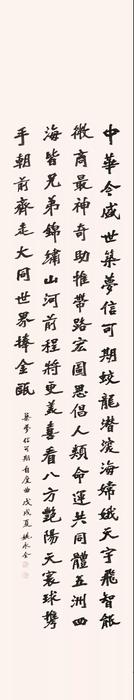 中華今盛世築夢信可期蛟龍潛滄海嫦娥天宇飛智能
微商最神奇助推帶路宏圖思倡人類命運共同體五洲四
海皆兄弟錦繡山河前程將更美喜看八方艷陽天寰球攜
手朝前齊走大同世界捧金甌
築夢信可期自度曲戊戌夏姚永全